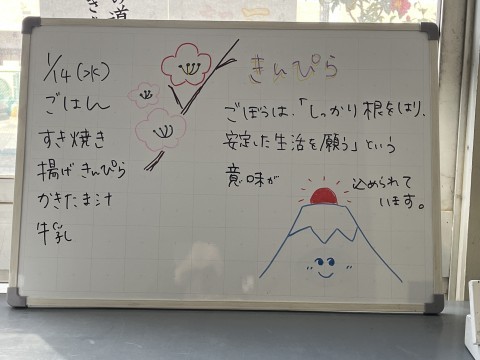 1/14(水)
ごはん
すき焼き
揚げきんぴら
かきたま汁
牛乳
きんぴら
ごぼうは、「しっかり根をはり、
安定した生活を願う」という
意味が
込められて
います。